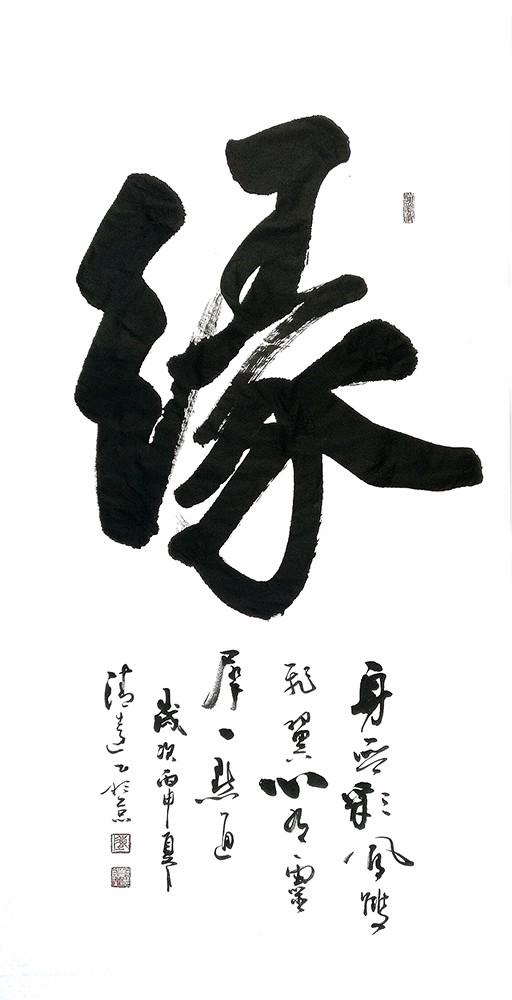 緣
身無彩鳳雙
飛翼心有靈
犀一點通
歲次丙申夏
清遠於京